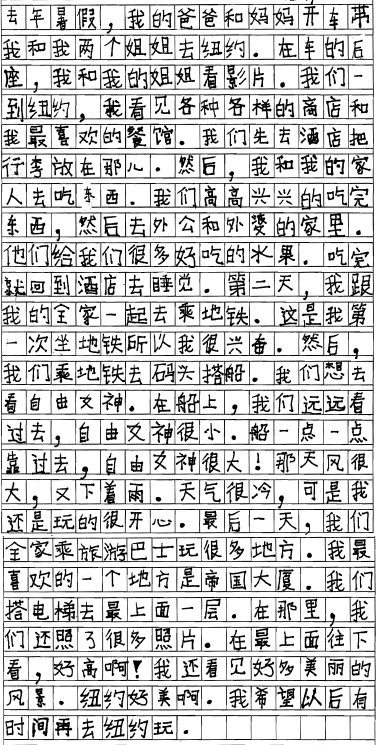 去年暑假，我的爸爸和妈妈开车带
我和我两个姐姐去纽约．在车的后
座，我和我的姐姐看影片．我们一
到纽约，我看见各种各样的商店和
我最喜欢的餐馆．我们先去酒店把
行李放在那儿．然后，我和我的家
人去吃东西．我们高高兴兴的吃完
东西，然后去外公和外婆的家里．
他们给我们很多好吃的水果．吃完
就回到酒店去睡觉．第二天，我跟
我的全家一起去乘地铁．这是我第
一次坐地铁所以我很兴奋．然后，
我们乘地铁去码头搭船．我们想去
看自由女神．在船上，我们远远看
过去，自由女神很小．船一点一点
靠过去，自由女神很大！那天风很
大，又下着雨．天气很冷，可是我
还是玩的很开心．最后一天，我们
全家乘旅游巴士玩很多地方．我最
喜欢的一个地方是帝国大厦．我们
搭电梯去最上面一层．在那里，我
们还照了很多照片．在最上面往下
看，好高啊！我还看见好多美丽的
风景．纽约好美啊．我希望以后有
时间再去纽约玩．